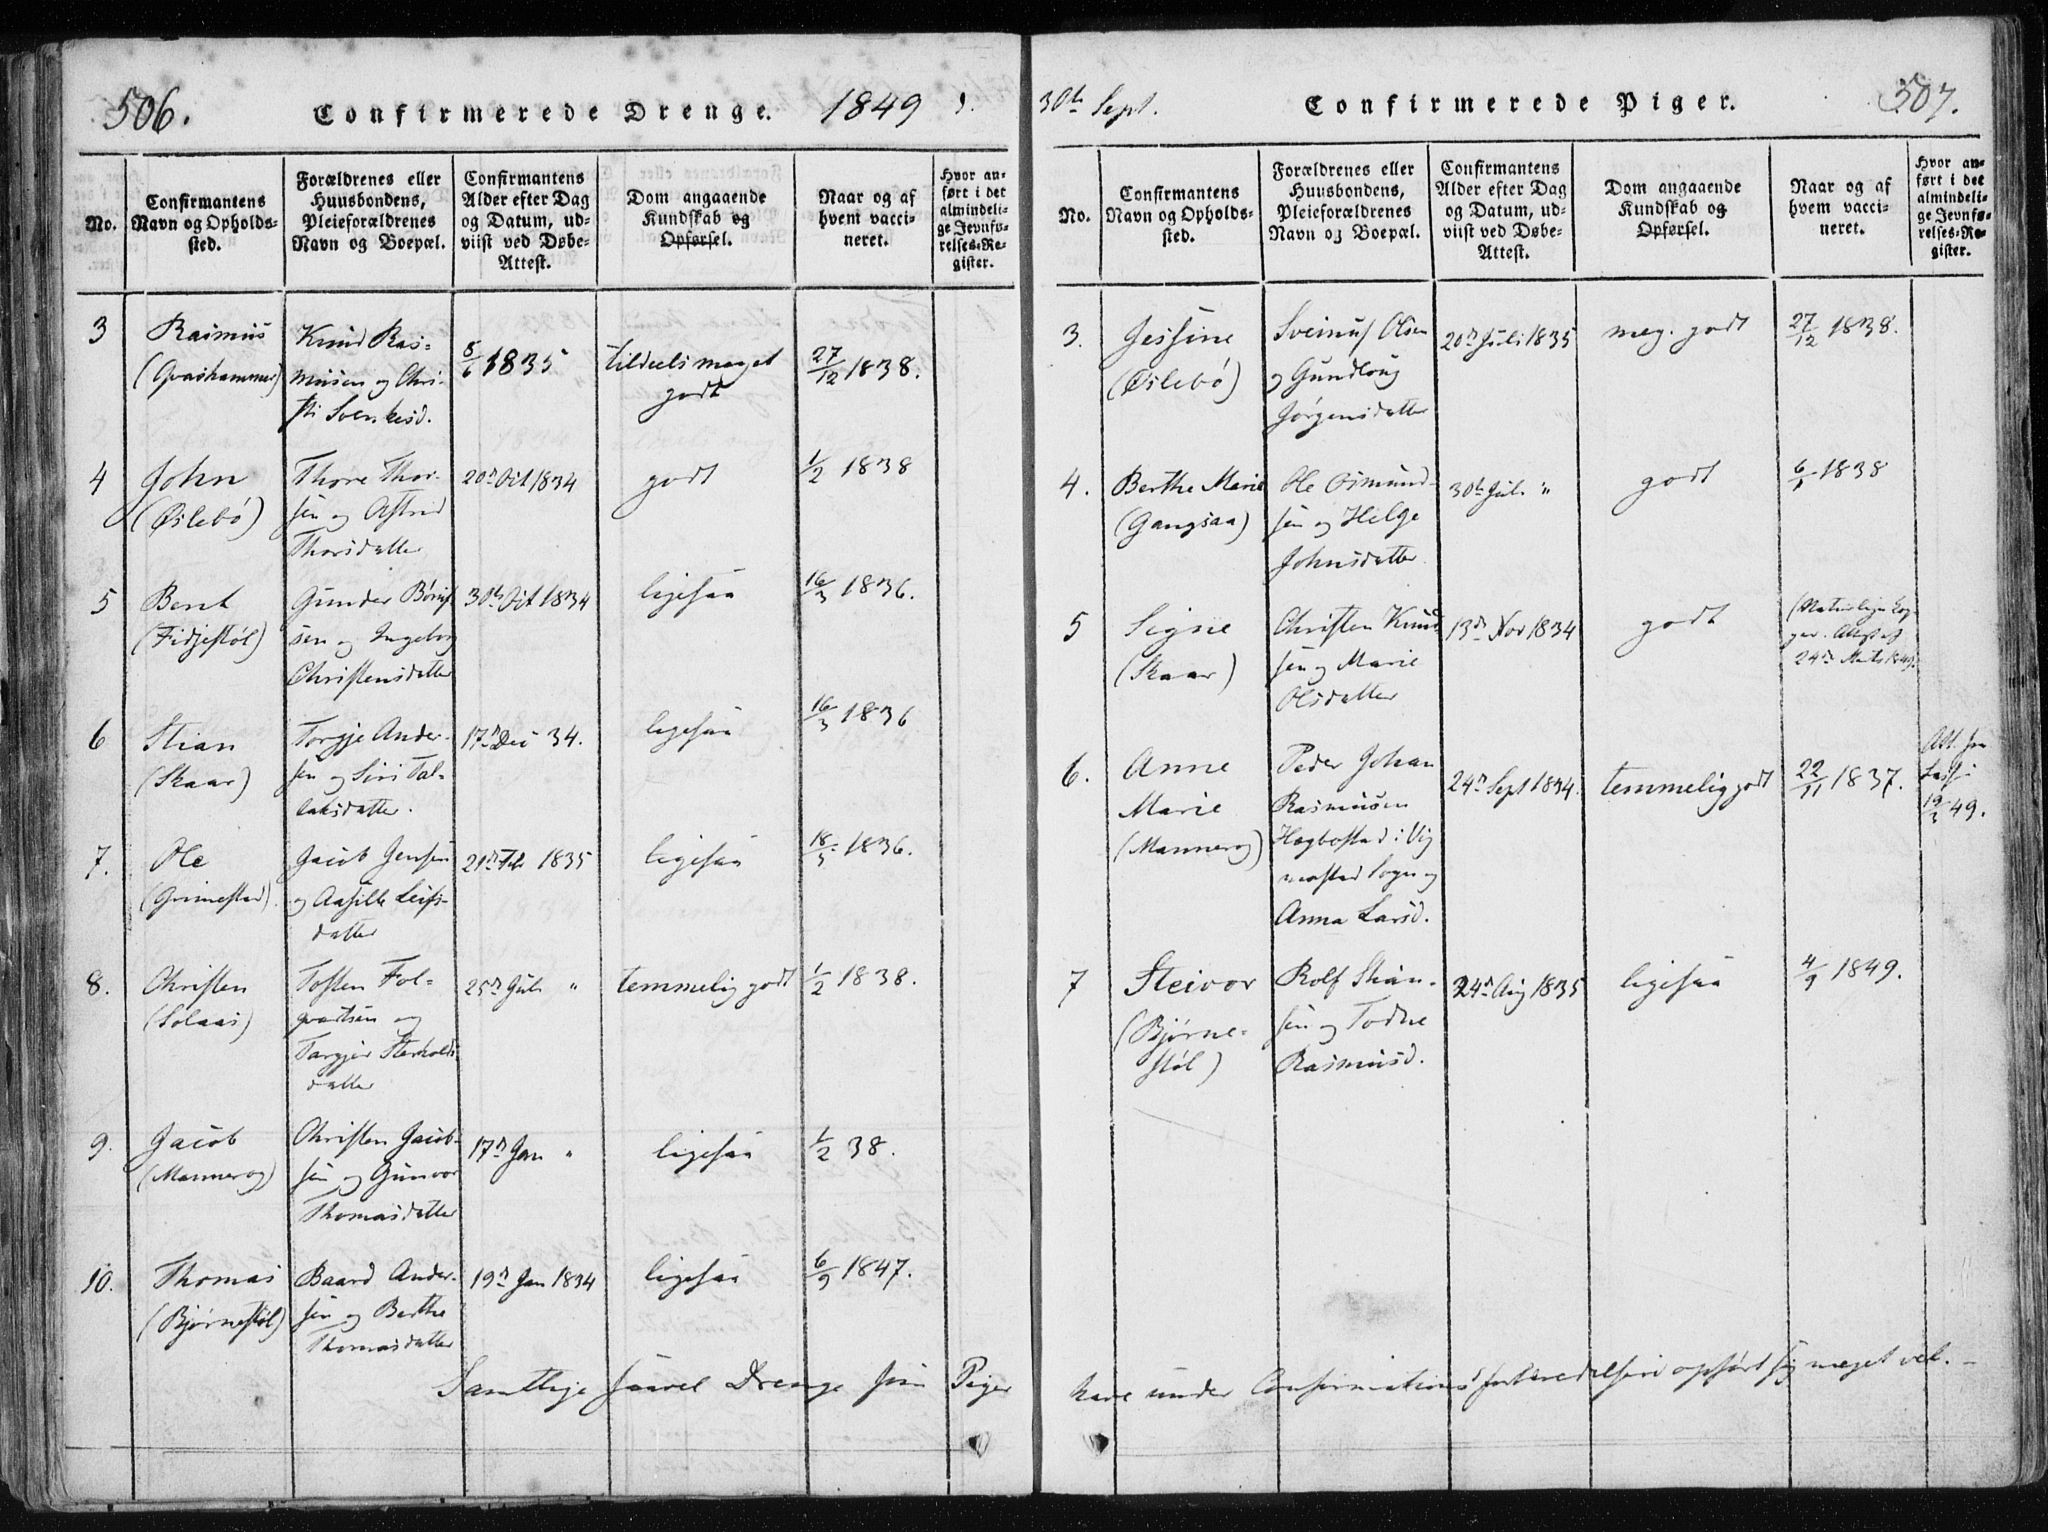 506.
Confirmerede Drenge.
1849
No.
Confirmantens
Navn og Opholds-
sted.
Forældrenes eller
Huusbondens,
Pleieforældrenes
Navn og Boepæl.
Confirmantens
Alder efter Dag
og Datum, ud-
viist ved Døbe-
Attest.
Dom angaaende
Kundskab og
Opførsel.
Naar og af
hvem vacci-
neret.
Hvor an-
ført i det
almindeli-
ge Jevnfø-
relses-Re-
gister.
3
Rasmus
(Qvashammer)
Knud Ras-
musen og Chri-
sti Svenkesd.
8/6 1835
tildeels meget
godt
27/12 1838.
4
John
(Øslebö)
Thore Thor-
sen og Astrid
Thorsdatter
20de Oct 1834
godt
1/2 1838
5
Bent
(Fidjestöl)
Gunder Börufs
sen og Ingeborg
Christensdatter
30te Oct 1834
ligesaa
16/3 1836.
6
Stian
(Skaar)
Torgje Ander-
sen og Siri Tal-
laksdatter.
17de Dec 34.
ligesaa
16/3 1836
7.
Ole
(Grimestad).
Jacob Jensen
og Aasille Leifs-
datter
21de Feb 1835
ligesaa
18/3 1836.
8.
Christen
(Solaas)
Tosten Fol-
qvartsen og
Targjer
datter
25de Juli "
temmelig godt
1/2 1838.
9.
Jacob
(Mannerog)
Christen Jacob-
sen og Gunvor
Thomasdatter
17de Jan "
ligesaa
1/2 38.
10.
Thomas
(Bjørnestöl)
Baard Ander-
sen og Berthe
Thomasdatter
19de Jan 1834
ligesaa
6/9 1847.
Samtlige saavel Drenge som Piger
30te Sept.
Confirmerede Piger.
507.
No.
Confirmantens
Navn og Opholds-
sted.
Forældrenes eller
Huusbondens,
Pleieforældrenes
Navn og Boepæl.
Confirmantens
Alder efter Dag
og Datum, ud-
viist ved Døbe-
Attest.
Dom angaaende
Kundskab og
Opførsel.
Naar og af
hvem vacci-
neret.
Hvor an-
ført i det
almindeli-
ge Jevnfø-
relses-Re-
gister.
3.
Jessine
(Øslebö)
Sveinuf Olsen
og Gundloug
Jörgensdatter
20de Juli 1835
meg. godt
27/12 1838.
4.
Berthe Marie
(Gangsaa)
Ole Osmund-
sen og Helge
Johnsdatter
30te Juli "
godt
6/1 1838
5
Signe
(Skaar)
Christen Knud
sen og Marie
Olsdatter
13de Nov 1834
godt
(Naturlige Kop-
per. Attest af
24de Marts 1849.
6.
Anne
Marie
(Mannerog)
Peder Johan
Rasmusen
Høgbostad i Vig
mostad Sogn og
Anna Larsd.
24de Sept 1834.
temmelig godt
22/11 1837.
Att. fra
49.
7
Steivor
(Bjørne-
stöl)
Rolf Stian-
sen og Todne
Rasmusd.
24de Aug 1835
ligesaa
4/9 1849.
have under Confirmationsforberedelsen opført sig meget vel. –